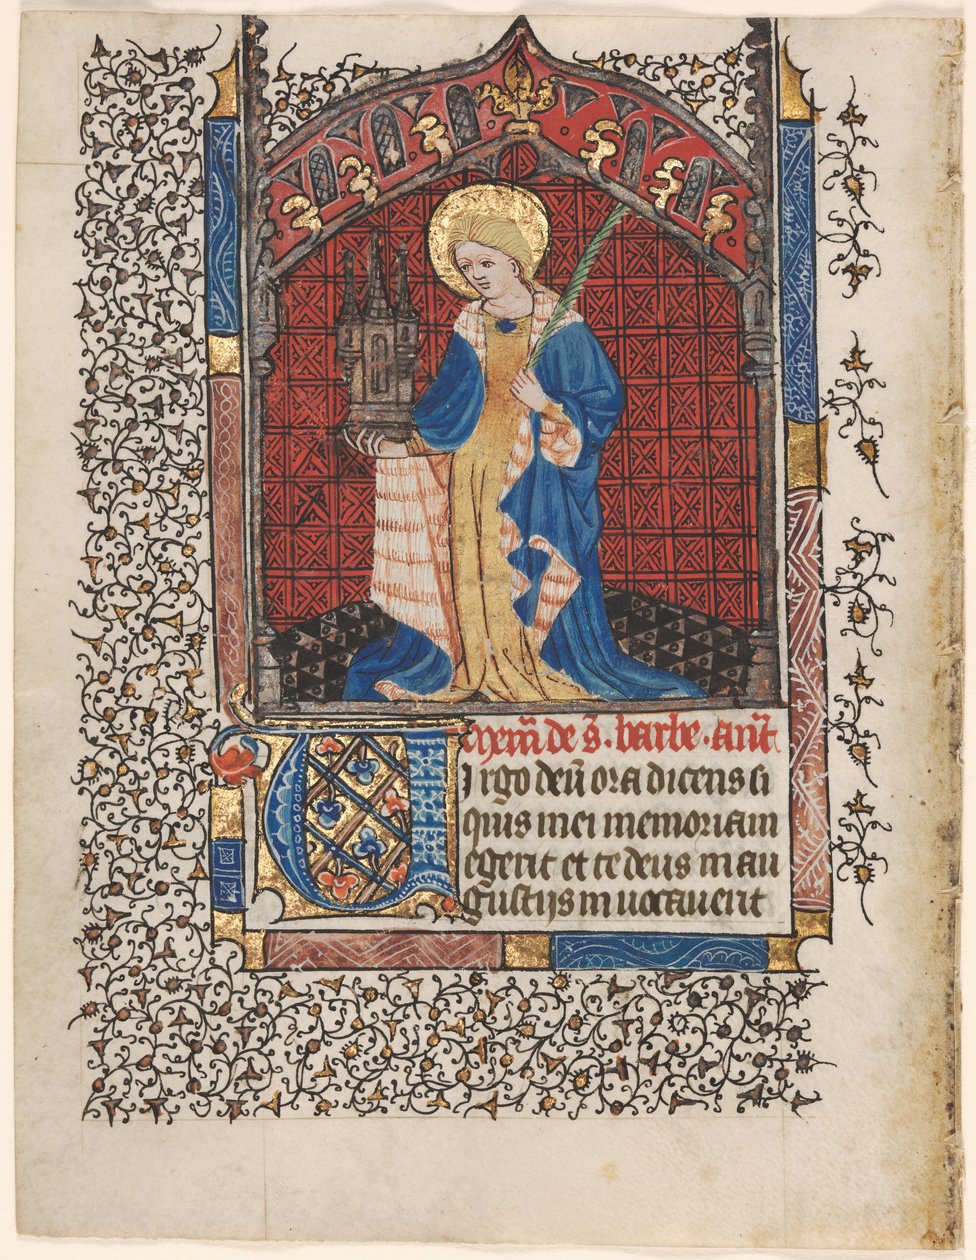 Mem̄ de s̄. barbe. añt
Virgo deū ora dicens si
quis mei memoriam
egerit et te deus in au
gustijs inuocauerit